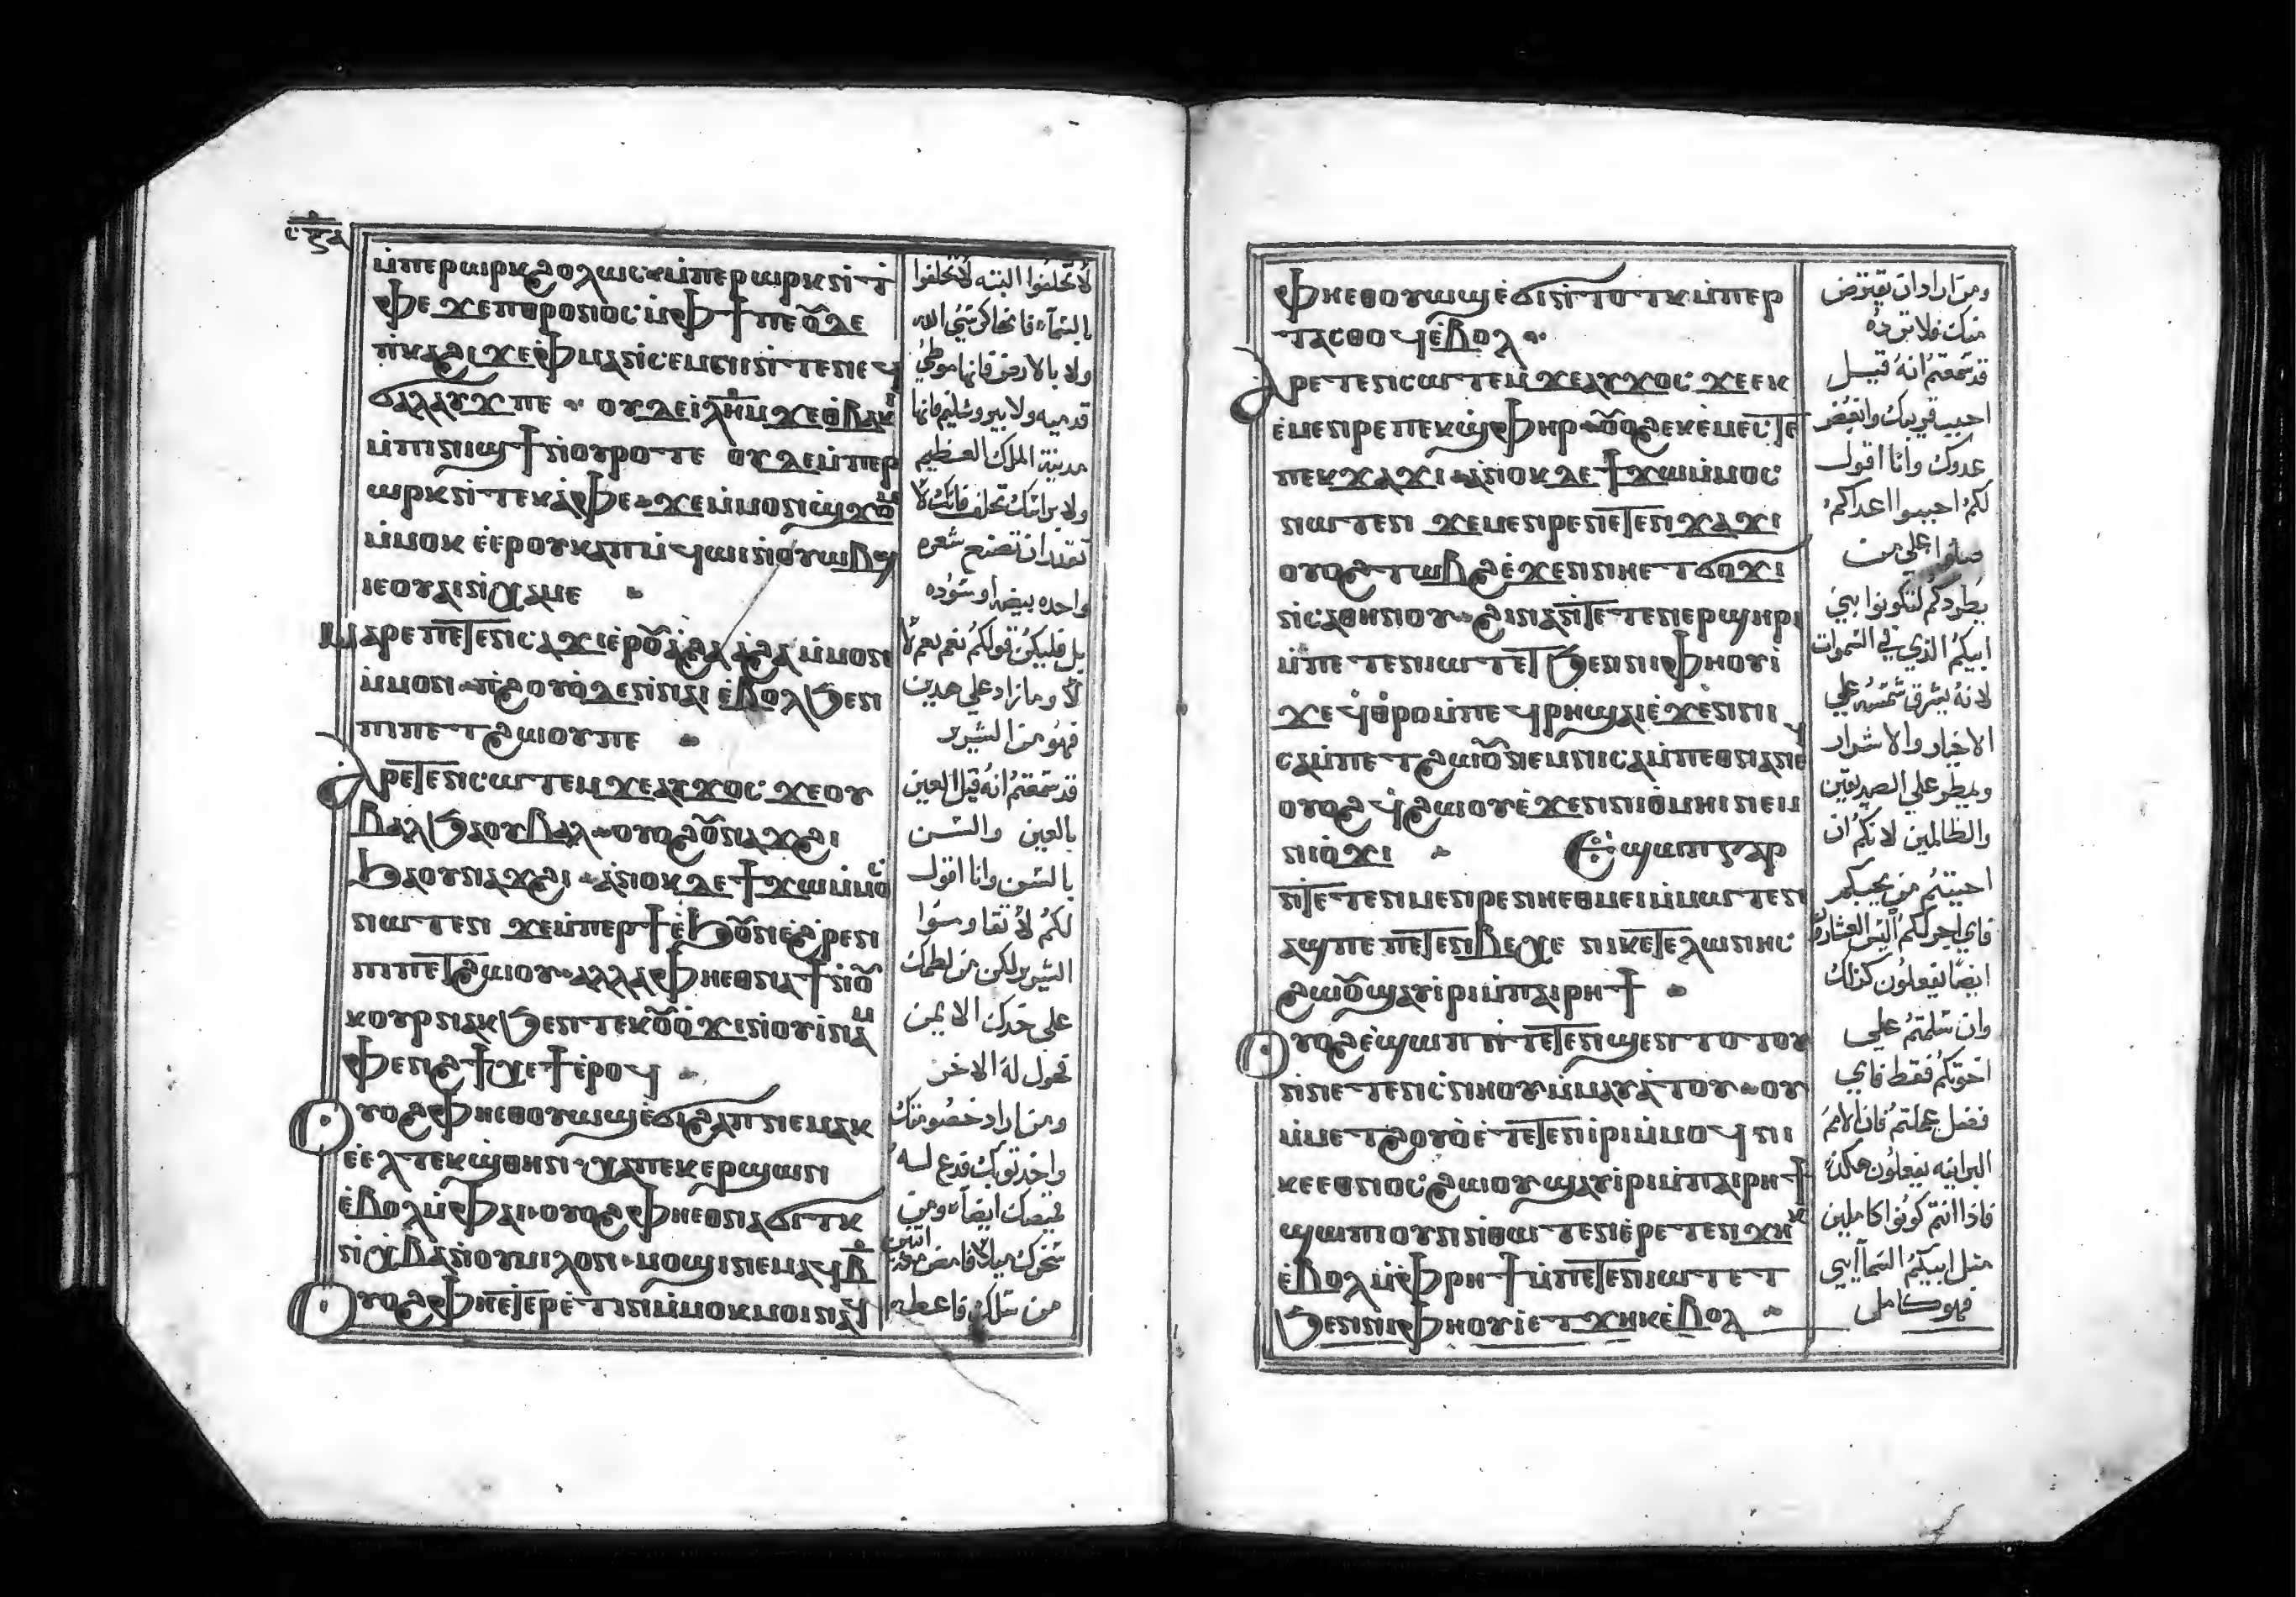 ⲙ̀ⲡⲉⲣⲱⲣⲕ ϩⲟⲗⲱⲥ ⲙ̀ⲡⲉⲣⲱⲣⲕ ⲛ̀ⲧ
ⲫⲉ ϫⲉ ⲡⲑⲣⲟⲛⲟⲥ ⲙ̀ⲫϯ ⲡⲉ ⲟⲩⲇⲉ
ⲡ̀ⲕⲁϩⲓ ϫⲉ ⲫ̀ⲙⲁⲛⲥⲉⲙⲛⲓ ⲛ̀ⲧⲉ ⲛⲉϥ
ϭⲁⲗⲁⲩϫ ⲡⲉ ⲟⲩⲇⲉ ⲓⲗ̅ⲏ̅ⲙ̅ ϫⲉ ⲑ̀ⲃⲁⲕⲓ
ⲙ̀ⲡⲓⲛⲓϣϯ ⲛ̀ⲟⲩⲣⲟ ⲧⲉ ⲟⲩⲇⲉ ⲙ̀ⲡⲉⲣ
ⲱⲣⲕ ⲛ̀ⲧⲉⲕⲁ̀ⲫⲉ ϫⲉ ⲙ̀ⲙⲟⲛ ϣ̀ϫⲟⲙ
ⲙ̀ⲙⲟⲕ ⲉ̀ⲉⲣ ⲟⲩⲕⲁⲡ ⲙ̀ϥⲱⲓ ⲛ̀ⲟⲩⲱⲃϣ
ⲓⲉ ⲟⲩⲁⲓ ⲛ̀ⲭⲁⲙⲉ
ⲙⲁⲣⲉ ⲡⲉⲧⲉⲛⲥⲁϫⲓ ⲉⲣ ⲟⲩⲁ̀ϩⲁ ⲁ̀ϩⲁ ⲙ̀ⲙⲟⲛ
ⲙ̀ⲙⲟⲛ ⲡ̀ϩⲟⲩⲟ̀ ⲇⲉ ⲛ̀ⲛⲁⲓ ⲉ̀ⲃⲟⲗ ϧⲉⲛ
ⲡⲓⲡⲉⲧϩⲱⲟⲩ ⲡⲉ
ⲁⲣⲉⲧⲉⲛⲥⲱⲧⲉⲙ ϫⲉ ⲁⲩϫⲟⲥ ϫⲉ ⲟⲩ
ⲃⲁⲗ ϧⲁ ⲟⲩⲃⲁⲗ ⲟⲩⲟϩ ⲟⲩⲛⲁϫϩⲓ
ϧⲁ ⲟⲩⲛⲁϫϩⲓ ⲁ̀ⲛⲟⲕ ⲇⲉ ϯϫⲱ ⲙ̀ⲙⲟⲥ
ⲛⲱⲧⲉⲛ ϫⲉ ⲙ̀ⲡⲉⲣϯ ⲉ̀ϧⲟⲩⲛ ⲉ̀ϩⲣⲉⲛ
ⲡⲓⲡⲉⲧϩⲱⲟⲩ ⲁⲗⲗⲁ ⲫⲏ ⲉⲑⲛⲁϯ ⲛ̀ⲟⲩ
ⲕⲟⲩⲣ ⲛⲁⲕ ϧⲉⲛ ⲧⲉⲕⲟⲩⲟ̀ϫⲓ ⲛ̀ⲟⲩⲓⲛⲁⲙ
ⲫⲉⲛϩ ϯⲭⲉϯ ⲉ̀ⲣⲟϥ
ⲟⲩⲟϩ ⲫⲏ ⲉⲑⲟⲩⲱϣ ⲉ̀ϭⲓϩⲁⲡ ⲛⲉⲙⲁⲕ
ⲉ̀ⲉⲗ ⲧⲉⲕϣ̀ⲑⲏⲛ ⲭⲁ ⲡⲉⲕⲉⲣϣⲱⲛ
ⲉ̀ⲃⲟⲗ ⲙ̀ⲫⲁⲓ ⲟⲩⲟϩ ⲫⲏ ⲉⲑⲛⲁϭⲓⲧⲕ
ⲛ̀ⲭ̀ⲃⲁ ⲛ̀ⲟⲩⲙⲓⲗⲟⲛ ⲙⲟϣⲓ ⲛⲉⲙⲁϥ ⲃ̅
ⲟⲩⲟϩ ⲫⲏ ⲉⲧⲉⲣⲉ̀ⲧⲓⲛ ⲙ̀ⲙⲟⲕ ⲙⲟⲓ ⲛⲁϥ
لا تحلفوا البته لا تحلفوا
بالسمآء فانها كرسي الله
ولا بالارض فانها موطي
قدميه ولا بيروشليم فانها
مدينة الملك العظيم
ولا براسك تحلف فانك لا
تقدر ان تصنع شعره
واحده بيضه او سوده
بل فليكن قولكم نعم نعم لا
لا وما زاد علي هدين
فهو من الشرير
قد سمعتم انه قيل العين
بالعين والسن
بالسن وانا اقول
لكم لا تقاوموا
الشرير لكن من لطمك
على خدك الايمن
تحول له الاخر
ومن اراد خصومتك
واخد توبك فدع له
قميصك ايضآ ومن
سخرك ميلا فامض معه اتنين
من سلك فاعطه
ⲫⲏ ⲉⲑⲟⲩⲱϣ ⲉ̀ϭⲓ ⲛ̀ⲧⲟⲧⲕ ⲙ̀ⲡⲉⲣ
ⲧⲁⲥⲑⲟϥ ⲉ̀ⲃⲟⲗ
ⲁⲣⲉⲧⲉⲛⲥⲱⲧⲉⲙ ϫⲉ ⲁⲩϫⲟⲥ ϫⲉ ⲉⲕ
ⲉ̀ⲙⲉⲛⲣⲉ ⲡⲉⲕϣ̀ⲫⲏⲣ ⲟⲩⲟϩ ⲉⲕⲉ̀ⲙⲉⲥⲧⲉ
ⲡⲉⲕϫⲁϫⲓ ⲁ̀ⲛⲟⲕ ⲇⲉ ϯϫⲱ ⲙ̀ⲙⲟⲥ
ⲛⲱⲧⲉⲛ ϫⲉ ⲙⲉⲛⲣⲉ ⲛⲉⲧⲉⲛϫⲁϫⲓ
ⲟⲩⲟϩ ⲧⲱⲃϩ ⲉ̀ϫⲉⲛ ⲛⲏ ⲉⲧϭⲟϫⲓ
ⲛ̀ⲥⲁⲑⲏⲛⲟⲩ ϩⲓⲛⲁ ⲛ̀ⲧⲉⲧⲉⲛⲉⲣϣⲏⲣⲓ
ⲙ̀ⲡⲉⲧⲉⲛⲓⲱⲧ ⲉⲧ ϧⲉⲛ ⲛⲓⲫⲏⲟⲩⲓ̀
ϫⲉ ϥ̀ⲑ̀ⲣⲟ ⲙ̀ⲡⲉϥⲣⲏ ϣⲁⲓ ⲉ̀ϫⲉⲛ ⲛⲓ
ⲥⲁⲙⲡⲉⲧϩⲱⲟⲩ ⲛⲉⲙ ⲛⲓⲥⲁⲙⲡⲉⲑⲛⲁⲛⲉϥ
ⲟⲩⲟϩ ϥ̀ϩⲱⲟⲩ ⲉ̀ϫⲉⲛ ⲛⲓⲑ̀ⲙⲏⲓ ⲛⲉⲙ
ⲛⲓⲟ̀ϫⲓ ⲉϣⲱⲡ ⲅⲁⲣ
ⲛ̀ⲧⲉⲧⲉⲛⲙⲉⲛⲣⲉ ⲛⲏ ⲉⲑⲙⲉⲓ ⲙ̀ⲙⲱⲧⲉⲛ
ⲁϣ ⲡⲉ ⲡⲉⲧⲉⲛⲃⲉⲭⲉ ⲛⲓⲕⲉⲧⲉⲗⲱⲛⲏⲥ
ϩⲱⲟⲩ ϣⲁⲩⲓ̀ⲣⲓ ⲙ̀ⲡⲁⲓⲣⲏϯ
ⲟⲩⲟϩ ⲉ̀ϣⲱⲡ ⲛ̀ⲧⲉⲧⲉⲛϣⲉⲛⲧⲟⲧⲟⲩ
ⲛ̀ⲛⲉⲧⲉⲛⲥⲛⲏⲟⲩ ⲙ̀ⲙⲁⲩⲁ̀ⲧⲟⲩ ⲟⲩ
ⲙ̀ⲙⲉⲧϩⲟⲩⲟ̀ ⲉ̀ⲧⲉⲧⲉⲛⲓⲣⲓ ⲙ̀ⲙⲟϥ ⲛⲓ
ⲕⲉⲉⲑⲛⲟⲥ ϩⲱⲟⲩ ϣⲁⲩⲓ̀ⲣⲓ ⲙ̀ⲡⲁⲓⲣⲏϯ
ϣⲱⲡⲓ ⲟⲩⲛ ⲛ̀ⲑⲱⲧⲉⲛ ⲉ̀ⲣⲉⲧⲉⲛϫⲏⲕ
ⲉ̀ⲃⲟⲗ ⲙ̀ⲫ̀ⲣⲏϯ ⲙ̀ⲡⲉⲧⲉⲛⲓⲱⲧ ⲉⲧ
ϧⲉⲛ ⲛⲓⲫⲏⲟⲩⲓ̀ ⲉⲧϫⲏⲕ ⲉ̀ⲃⲟⲗ
ومن اراد ان يقترض
منك فلا ترده
قد سمعتم انه قيل
احبب قريبك وابغض
عدوك وانا اقول
لكم احببوا اعداكم
صلوا علي من
يطردكم لتكونوا بني
ابيكم الذي في السموات
لانه يشرق شمسه علي
الاخيار والاشرار
ويمطر علي الصديقين
والظالمين لانكم ان
احببتم من يحبكم
فاي اجر لكم اليس العشارون
ايضا يفعلون كذلك
وان سلمتم علي
اخوتكم فقط فاي
فضل عملتم فان الامم
البرانيه يفعلون هكذا
فاذا انتم كونوا كاملين
مثل ابيكم السمآيي
فهو كامل